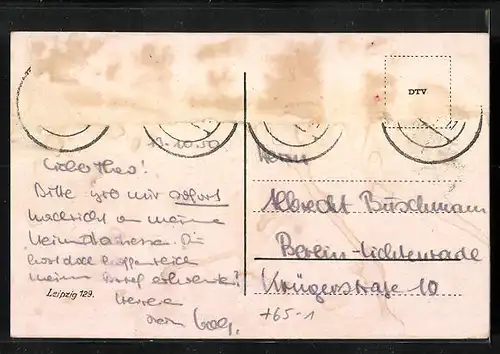 DTV
13.10.50
Lieber Theo!
Bitte gib mir sofort
Nachricht an meine
Heimatadresse. Du
hast doch hoffentlich
meinen Brief erhalten?
Herrn
Albrecht Buschmann
Berlin-Lichtenrade
Krügerstraße 10
Leipzig 129.
+65-1